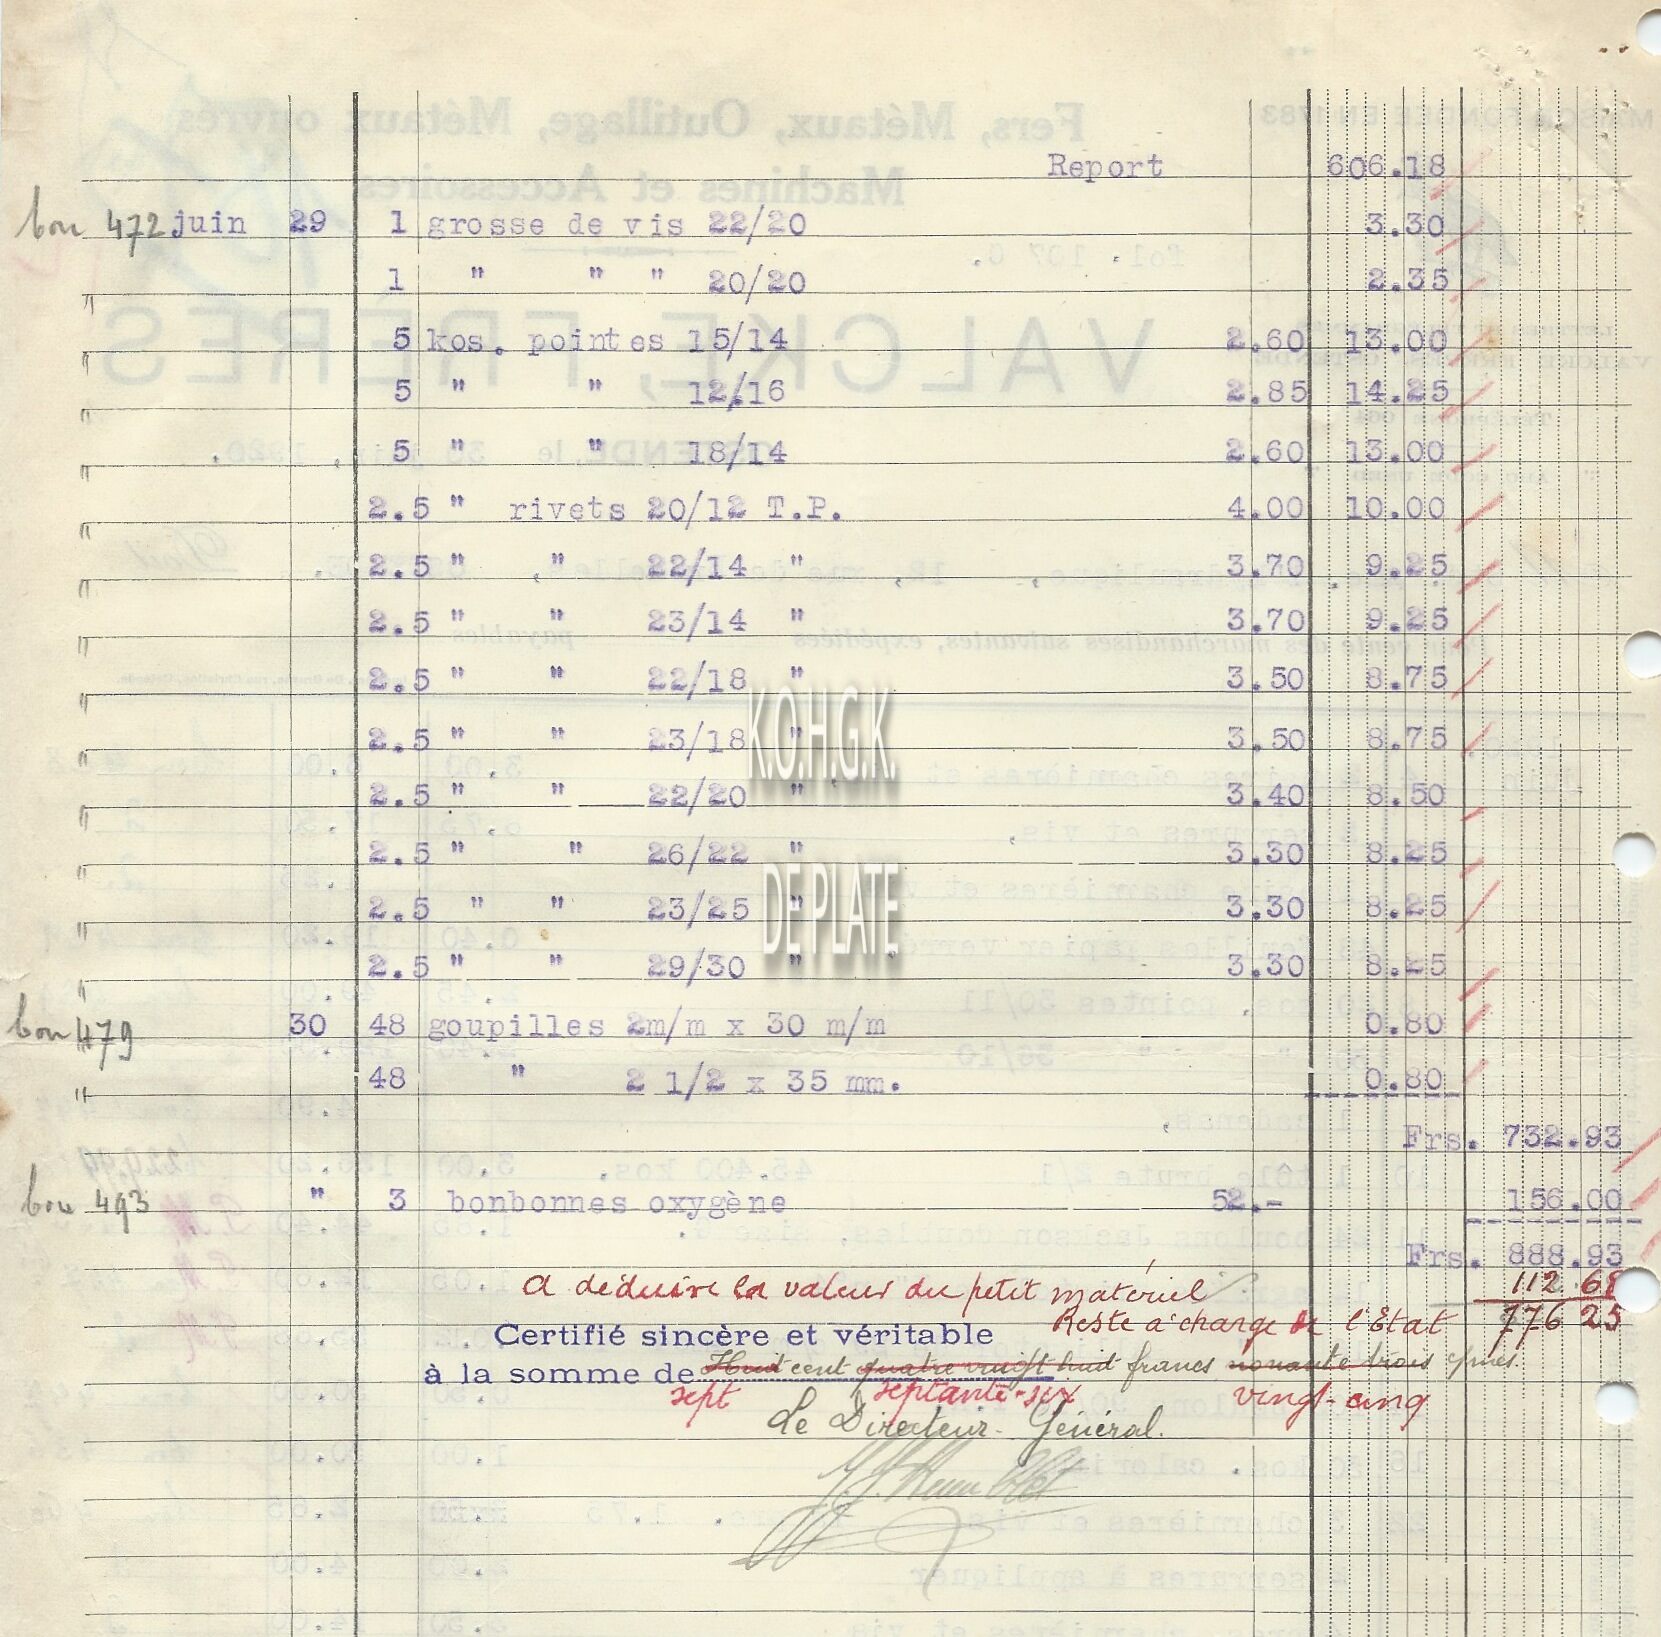 Report 606.18
bon 472 juin 29 1 grosse de vis 22/20 3.30
" 1 " " " 20/20 2.35
" 5 kos. pointes 15/14 2.60 13.00
" 5 " " 12/16 2.85 14.25
" 5 " " 18/14 2.60 13.00
" 2.5 " rivets 20/12 T.P. 4.00 10.00
" 2.5 " " 22/14 " 3.70 9.25
" 2.5 " " 23/14 " 3.70 9.25
" 2.5 " " 22/18 " 3.50 8.75
" 2.5 " " 23/18 " 3.50 8.75
" 2.5 " " 22/20 " 3.40 8.50
" 2.5 " " 26/22 " 3.30 8.25
" 2.5 " " 23/25 " 3.30 8.25
" 2.5 " " 29/30 " 3.30 8.25
K.O.H.G.K.
DE PLATE
bon 479 30 48 goupilles 2m/m x 30 m/m 0.80
" 48 " 2 1/2 x 35 mm. 0.80
Frs. 732.93
bon 493 " 3 bonbonnes oxygène 52.- 156.00
Frs. 888.93
A déduire la valeur du petit matériel 112.68
Reste à charge de l'Etat 776 25
Certifié sincère et véritable
à la somme de Huit cent quatre vingt huit francs nonante trois cmes.
sept septante-six vingt-cinq
Le Directeur Général.